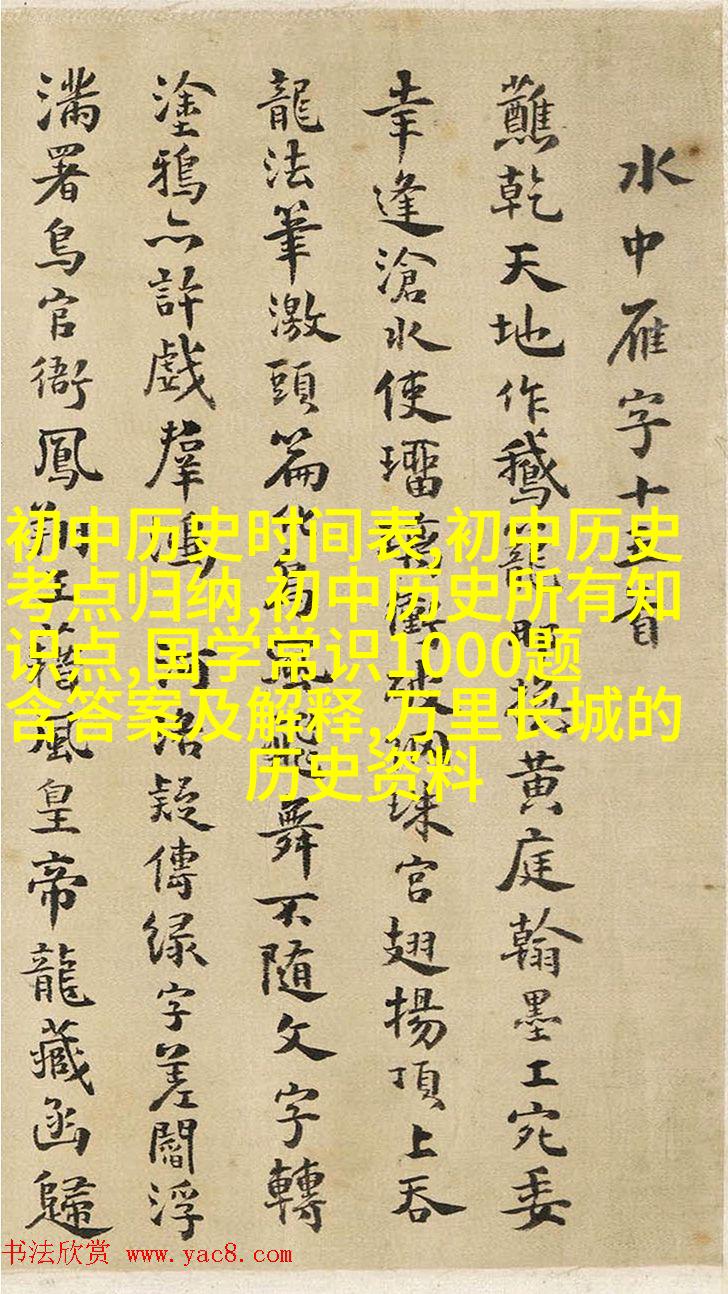 水中雁字十五首
蘸乾天地作鵝籠換黄庭翰墨工宛委
幸逢滄水使破網珠宮翅揚頂上吞
龍法筆激頭篇風飛舞不随文字轉
塗鴉亦許戲羣鴻河洛疑傳緑字差閻浮
滿署鳥官衙鳳風皇帝龍藏函歸
初中历史时间表,初中历史
考点归纳,初中历史所有知
识点,国学常识1000题
含答案及解释,万里长城的
历史资料
书法欣赏 www.yac8.com